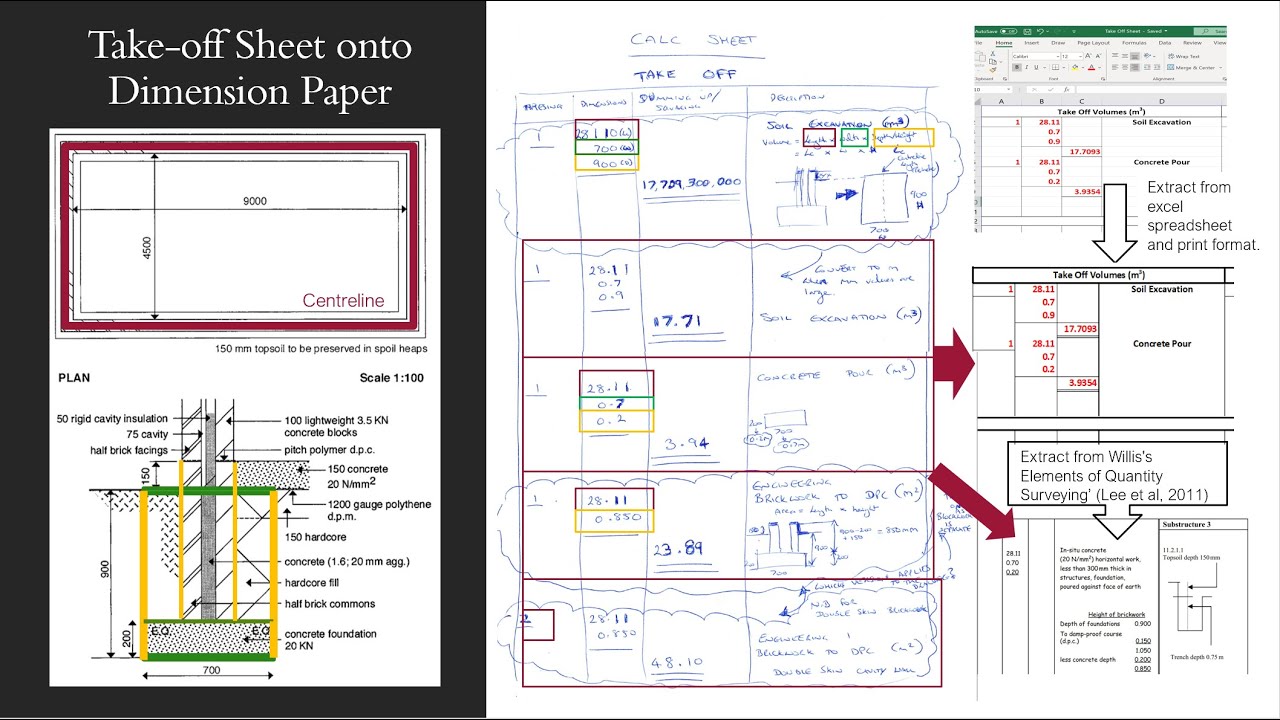 Take-off Sheet onto
Dimension Paper
9000
4500
Centreline
150 mm topsoil to be preserved in spoil heaps
PLAN
Scale 1:100
50 rigid cavity insulation
75 cavity
half brick facings
100 lightweight 3.5 KN
concrete blocks
pitch polymer d.p.c.
150
150 concrete
20 N/mm2
1200 gauge polythene
d.p.m.
150 hardcore
900
concrete (1.6; 20 mm agg.)
hardcore fill
half brick commons
200
E.Q.
concrete foundation
20 KN
700
CALC SHEET
TAKE OFF
DIMENSIONS
SUMMING UP/
SQUARING
DESCRIPTION
1
28.110 (L)
700 (W)
900 (D)
17,709,300,000
SOIL EXCAVATION (m3)
Volume = Length x Width x Depth/Height
900
H
700
1
28.11
0.7
0.9
17.71
CONVERT TO m
when mm values are
large.
SOIL EXCAVATION (m3)
1
28.11
0.7
0.2
3.94
CONCRETE POUR (m3)
200
700
0.2m
0.7m
1
28.11
0.850
23.89
ENGINEERING
BRICKWORK TO DPC (m2)
Area = Length x height
900-200
+150
= 850mm
900
200
700
WHICH VERSION APPLIES
TO THE DRAWINGS?
2
28.11
0.850
48.10
N.B FOR
DOUBLE SKIN BRICKWORK
ENGINEERING
BRICKWORK TO DPC (m2)
DOUBLE SKIN CAVITY WALL
AutoSave Off
Take Off Sheet - Saved
Home Insert Draw Page Layout Formulas Data Review View
Calibri 12
Wrap Text
Merge & Center
Clipboard Font Alignment
A B C D
Take Off Volumes (m3)
1 28.11 Soil Excavation
0.7
0.9
17.7093
1 28.11 Concrete Pour
0.7
0.2
3.9354
Extract from
excel
spreadsheet
and print format.
Take Off Volumes (m3)
1 28.11 Soil Excavation
0.7
0.9
17.7093
1 28.11 Concrete Pour
0.7
0.2
3.9354
Extract from Willis's
Elements of Quantity
Surveying' (Lee et al, 2011)
Substructure 3
28.11
0.70
0.20
In-situ concrete
(20 N/mm2) horizontal work,
less than 300 mm thick in
structures, foundation,
poured against face of earth
11.2.1.1
Topsoil depth 150 mm
Height of brickwork
Depth of foundations 0.900
To damp-proof course
(d.p.c.) 0.150
1.050
less concrete depth 0.200
0.850
Trench depth 0.75 m